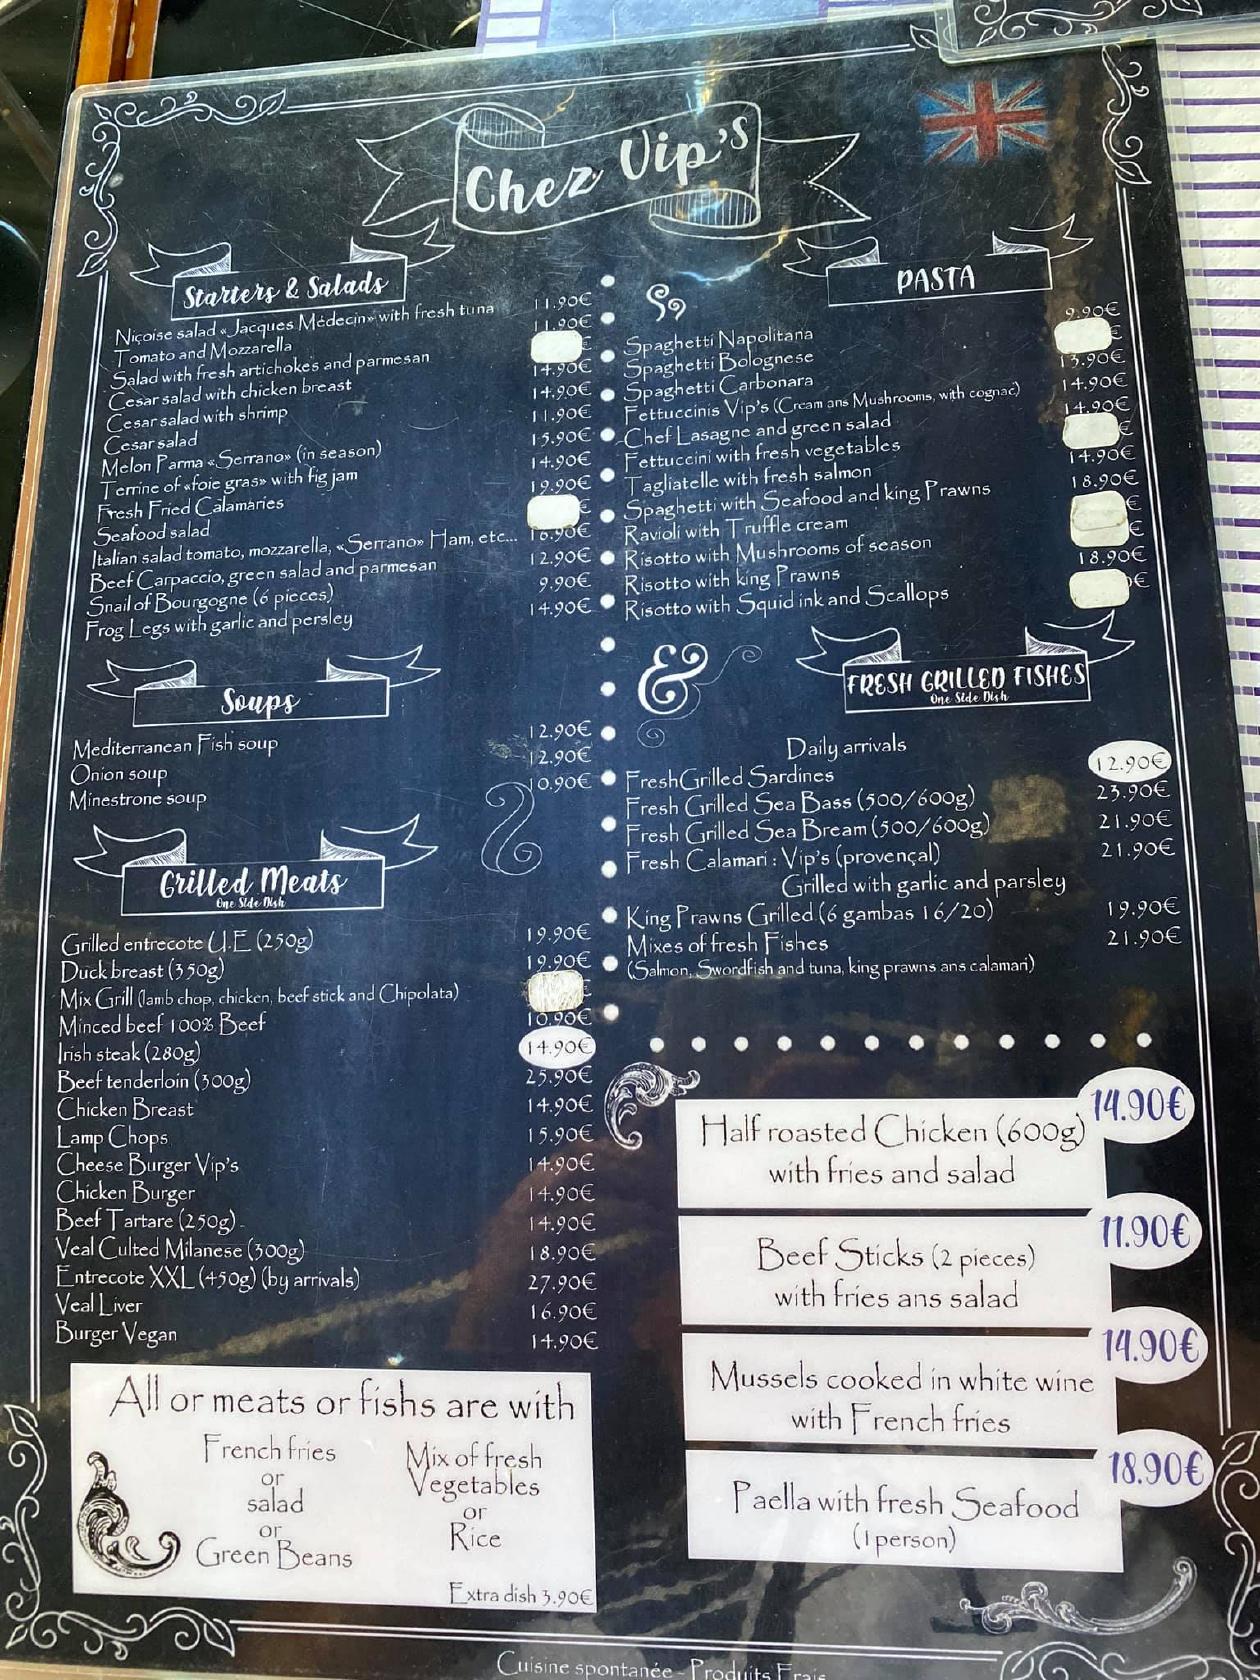 Chez Vip's
Starters & Salads
Niçoise salad «Jacques Médecin» with fresh tuna 11.90€
Tomato and Mozzarella 11.90€
Salad with fresh artichokes and parmesan €
Cesar salad with chicken breast 14.90€
Cesar salad with shrimp 14.90€
Cesar salad 11.90€
Melon Parma «Serrano» (in season) 15.90€
Terrine of «foie gras» with fig jam 14.90€
Fresh Fried Calamaries 19.90€
Seafood salad €
Italian salad tomato, mozzarella, «Serrano» Ham, etc... 16.90€
Beef Carpaccio, green salad and parmesan 12.90€
Snail of Bourgogne (6 pieces) 9.90€
Frog Legs with garlic and persley 14.90€
Soups
Mediterranean Fish soup 12.90€
Onion soup 12.90€
Minestrone soup 10.90€
Grilled Meats
One Side Dish
Grilled entrecote U.E (250g) 19.90€
Duck breast (350g) 19.90€
Mix Grill (lamb chop, chicken, beef stick and Chipolata)
Minced beef 100% Beef 10.90€
Irish steak (280g) 14.90€
Beef tenderloin (300g) 25.90€
Chicken Breast 14.90€
Lamp Chops 15.90€
Cheese Burger Vip's 14.90€
Chicken Burger 14.90€
Beef Tartare (250g) 14.90€
Veal Culted Milanese (300g) 18.90€
Entrecote XXL (450g) (by arrivals) 27.90€
Veal Liver 16.90€
Burger Vegan 14.90€
All or meats or fishs are with
French fries
or
salad
or
Green Beans
Mix of fresh
Vegetables
or
Rice
Extra dish 3.90€
PASTA
Spaghetti Napolitana 9.90€
Spaghetti Bolognese €
Spaghetti Carbonara 13.90€
Fettuccinis Vip's (Cream ans Mushrooms, with cognac) 14.90€
Chef Lasagne and green salad 14.90€
Fettuccini with fresh vegetables €
Tagliatelle with fresh salmon 14.90€
Spaghetti with Seafood and king Prawns 18.90€
Ravioli with Truffle cream €
Risotto with Mushrooms of season €
Risotto with king Prawns 18.90€
Risotto with Squid ink and Scallops €
&
FRESH GRILLED FISHES
One Side Dish
Daily arrivals
Fresh Grilled Sardines 12.90€
Fresh Grilled Sea Bass (500/600g) 23.90€
Fresh Grilled Sea Bream (500/600g) 21.90€
Fresh Calamari : Vip's (provençal) 21.90€
Grilled with garlic and parsley
King Prawns Grilled (6 gambas 16/20) 19.90€
Mixes of fresh Fishes 21.90€
(Salmon, Swordfish and tuna, king prawns ans calamari)
Half roasted Chicken (600g) 14.90€
with fries and salad
Beef Sticks (2 pieces) 11.90€
with fries ans salad
Mussels cooked in white wine 14.90€
with French fries
Paella with fresh Seafood 18.90€
(1 person)
Cuisine spontanée - Produits Frais